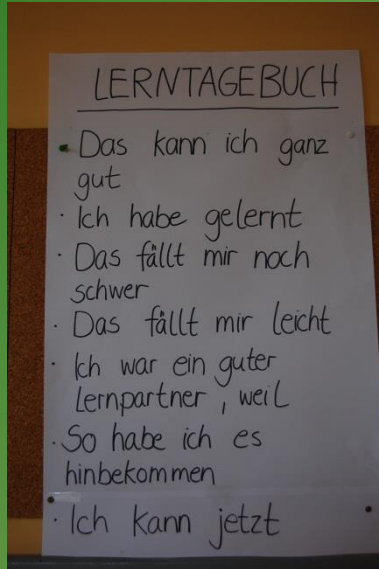 LERNTAGEBUCH
· Das kann ich ganz
gut
· Ich habe gelernt
· Das fällt mir noch
schwer
· Das fällt mir leicht
· Ich war ein guter
Lernpartner, weil
· So habe ich es
hinbekommen
· Ich kann jetzt